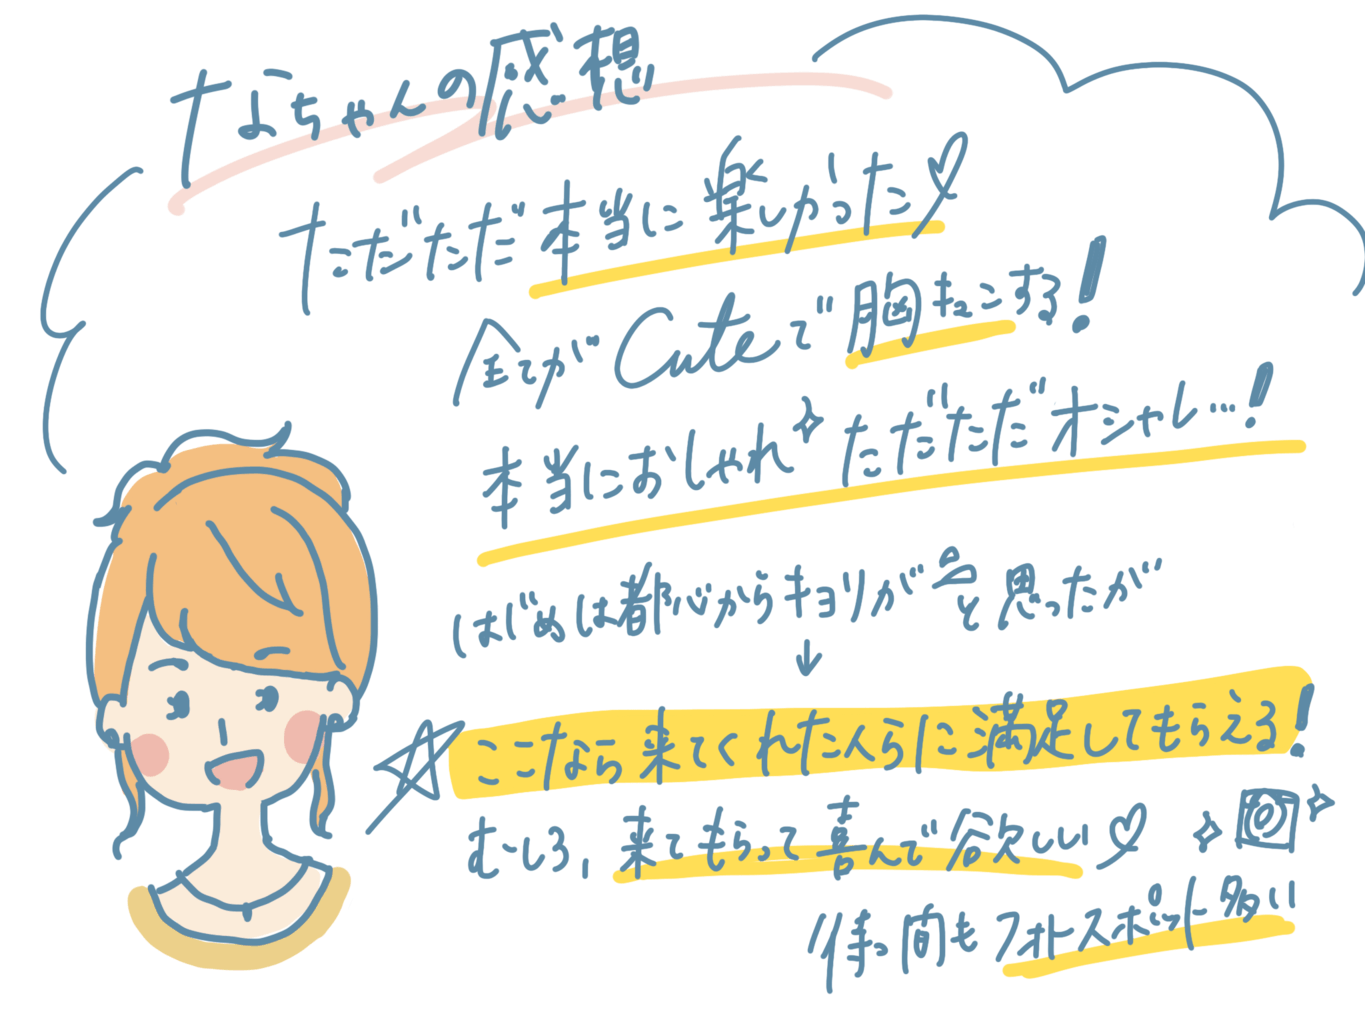 なちゃんの感想
ただただ本当に楽しかった♡
全てがCuteで胸キュンする!
本当におしゃれ ただただオシャレ…!
はじめは都心からキョリが と思ったが
↓
ここなら来てくれた人らに満足してもらえる!
むしろ、来てもらって喜んで欲しい♡
待つ間もフォトスポット多い